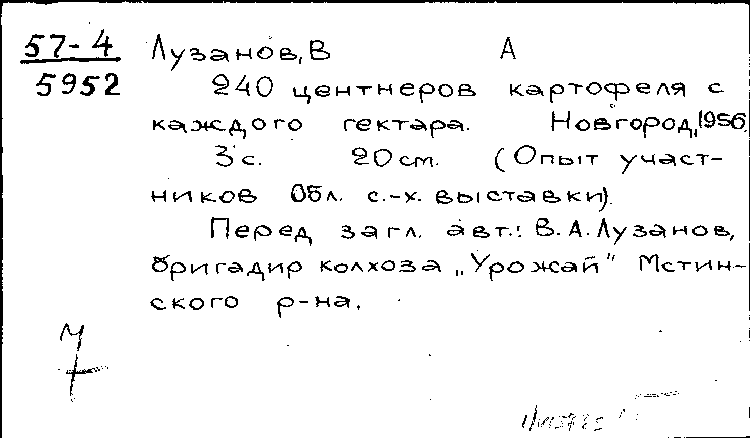 57-4 Лузанов, В А
5952 240 центнеров картофеля с
каждого гектара. Новгород, 1956
3 с. 20 см. (Опыт участ-
ников Обл. с.-х. выставки).
Перед загл. авт.: В. А. Лузанов,
бригадир колхоза „Урожай" Мстин-
ского р-на.
М
7